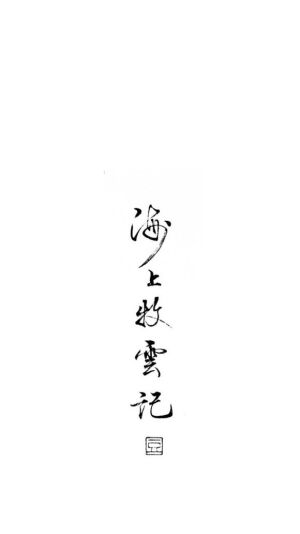 海上牧雲记